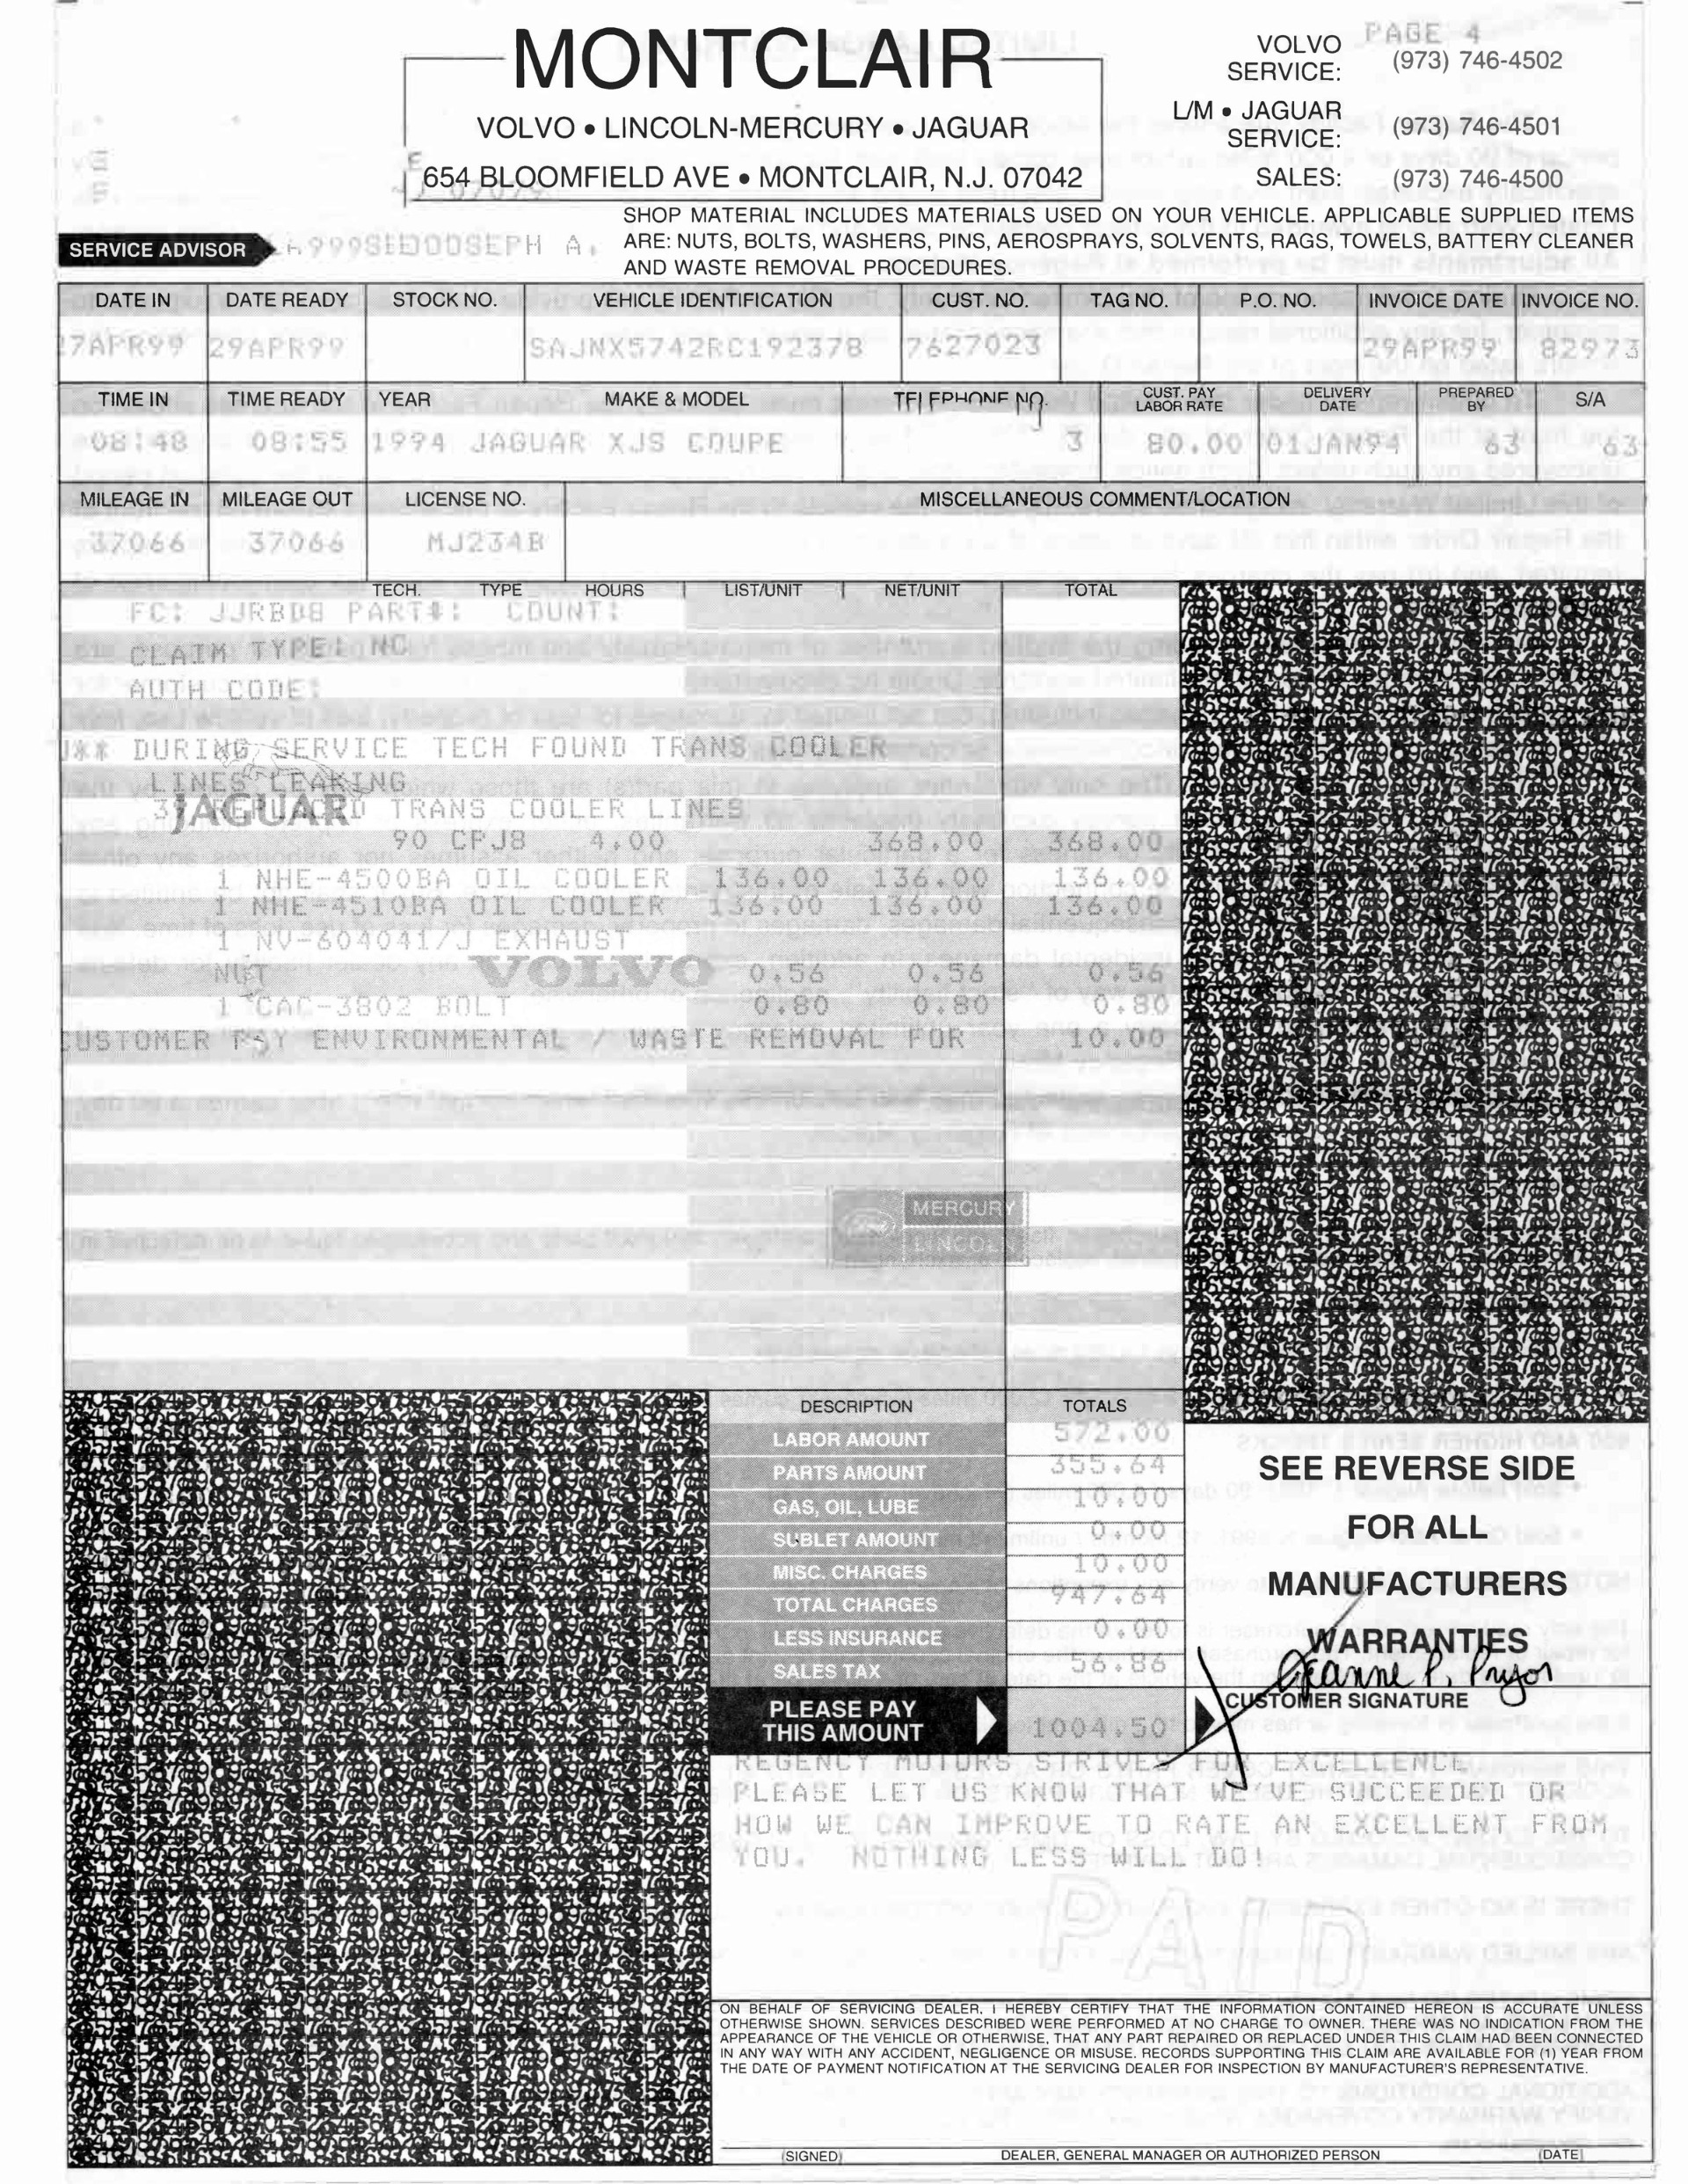 PAGE 4
MONTCLAIR
VOLVO • LINCOLN-MERCURY • JAGUAR
654 BLOOMFIELD AVE • MONTCLAIR, N.J. 07042
VOLVO SERVICE: (973) 746-4502
L/M • JAGUAR SERVICE: (973) 746-4501
SALES: (973) 746-4500
SHOP MATERIAL INCLUDES MATERIALS USED ON YOUR VEHICLE. APPLICABLE SUPPLIED ITEMS
ARE: NUTS, BOLTS, WASHERS, PINS, AEROSPRAYS, SOLVENTS, RAGS, TOWELS, BATTERY CLEANER
AND WASTE REMOVAL PROCEDURES.
SERVICE ADVISOR A.
DATE IN DATE READY STOCK NO. VEHICLE IDENTIFICATION CUST. NO. TAG NO. P.O. NO. INVOICE DATE INVOICE NO.
27APR99 29APR99 SAJNX5742RC192378 7627023 29APR99 82973
TIME IN TIME READY YEAR MAKE & MODEL TELEPHONE NO. CUST. PAY LABOR RATE DELIVERY DATE PREPARED BY S/A
08:48 08:55 1994 JAGUAR XJS COUPE 3 80.00 01JAN94 63 63
MILEAGE IN MILEAGE OUT LICENSE NO. MISCELLANEOUS COMMENT/LOCATION
37066 37066 MJ234B
TECH. TYPE HOURS LIST/UNIT NET/UNIT TOTAL
FC: JJRBD8 PART#: COUNT:
CLAIM TYPE: NC
AUTH CODE:
J** DURING SERVICE TECH FOUND TRANS COOLER
LINES LEAKING
JAGUAR
TRANS COOLER LINES
90 CPJ8 4.00 368.00 368.00
1 NHE-4500BA OIL COOLER 136.00 136.00 136.00
1 NHE-4510BA OIL COOLER 136.00 136.00 136.00
1 NV-604041/J EXHAUST
NUT 0.56 0.56 0.56
VOLVO
1 CAC-3802 BOLT 0.80 0.80 0.80
CUSTOMER PAY ENVIRONMENTAL / WASTE REMOVAL FOR 10.00
Ford MERCURY
LINCOLN
DESCRIPTION TOTALS
LABOR AMOUNT 572.00
PARTS AMOUNT 355.64
GAS, OIL, LUBE 10.00
SUBLET AMOUNT 0.00
MISC. CHARGES 10.00
TOTAL CHARGES 947.64
LESS INSURANCE 0.00
SALES TAX 56.86
PLEASE PAY THIS AMOUNT 1004.50
SEE REVERSE SIDE
FOR ALL
MANUFACTURERS
WARRANTIES
Jeanne P. Pryor
CUSTOMER SIGNATURE
REGENCY MOTORS STRIVES FOR EXCELLENCE
PLEASE LET US KNOW THAT WE'VE SUCCEEDED OR
HOW WE CAN IMPROVE TO RATE AN EXCELLENT FROM
YOU. NOTHING LESS WILL DO!
PAID
ON BEHALF OF SERVICING DEALER, I HEREBY CERTIFY THAT THE INFORMATION CONTAINED HEREON IS ACCURATE UNLESS
OTHERWISE SHOWN. SERVICES DESCRIBED WERE PERFORMED AT NO CHARGE TO OWNER. THERE WAS NO INDICATION FROM THE
APPEARANCE OF THE VEHICLE OR OTHERWISE, THAT ANY PART REPAIRED OR REPLACED UNDER THIS CLAIM HAD BEEN CONNECTED
IN ANY WAY WITH ANY ACCIDENT, NEGLIGENCE OR MISUSE. RECORDS SUPPORTING THIS CLAIM ARE AVAILABLE FOR (1) YEAR FROM
THE DATE OF PAYMENT NOTIFICATION AT THE SERVICING DEALER FOR INSPECTION BY MANUFACTURER'S REPRESENTATIVE.
(SIGNED) DEALER, GENERAL MANAGER OR AUTHORIZED PERSON (DATE)